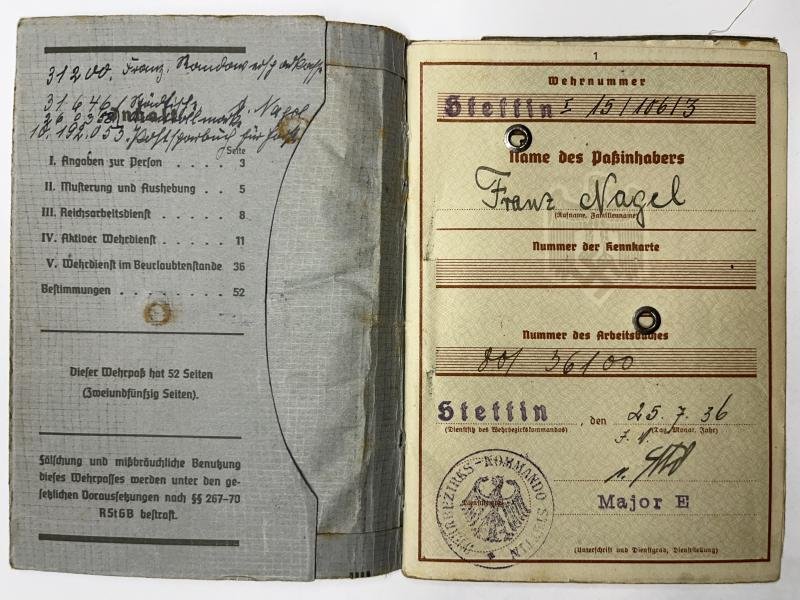 31200. Franz.
31.646
Inhalt
J. Nagel
10.192.053. Postsparbuch für
Seite
I. Angaben zur Person . . . . . 3
II. Musterung und Aushebung . . 5
III. Reichsarbeitsdienst . . . . . 8
IV. Aktiver Wehrdienst . . . . . 11
V. Wehrdienst im Beurlaubtenstande 36
Bestimmungen . . . . . . . . 52
Dieser Wehrpaß hat 52 Seiten
(Zweiundfünfzig Seiten).
Fälschung und mißbräuchliche Benutzung
dieses Wehrpasses werden unter den ge-
setzlichen Voraussetzungen nach §§ 267-70
RStGB bestraft.
1
Wehrnummer
Stettin I 15/106/3
Name des Paßinhabers
Franz Nagel
(Rufname, Familienname)
Nummer der Kennkarte
Nummer des Arbeitsbuches
801 36100
Stettin, den 25.7.36
(Dienstsitz des Wehrbezirkskommandos) (Tag, Monat, Jahr)
WEHRBEZIRKS-KOMMANDO STETTIN
Major E
(Unterschrift und Dienstgrad, Dienststellung)